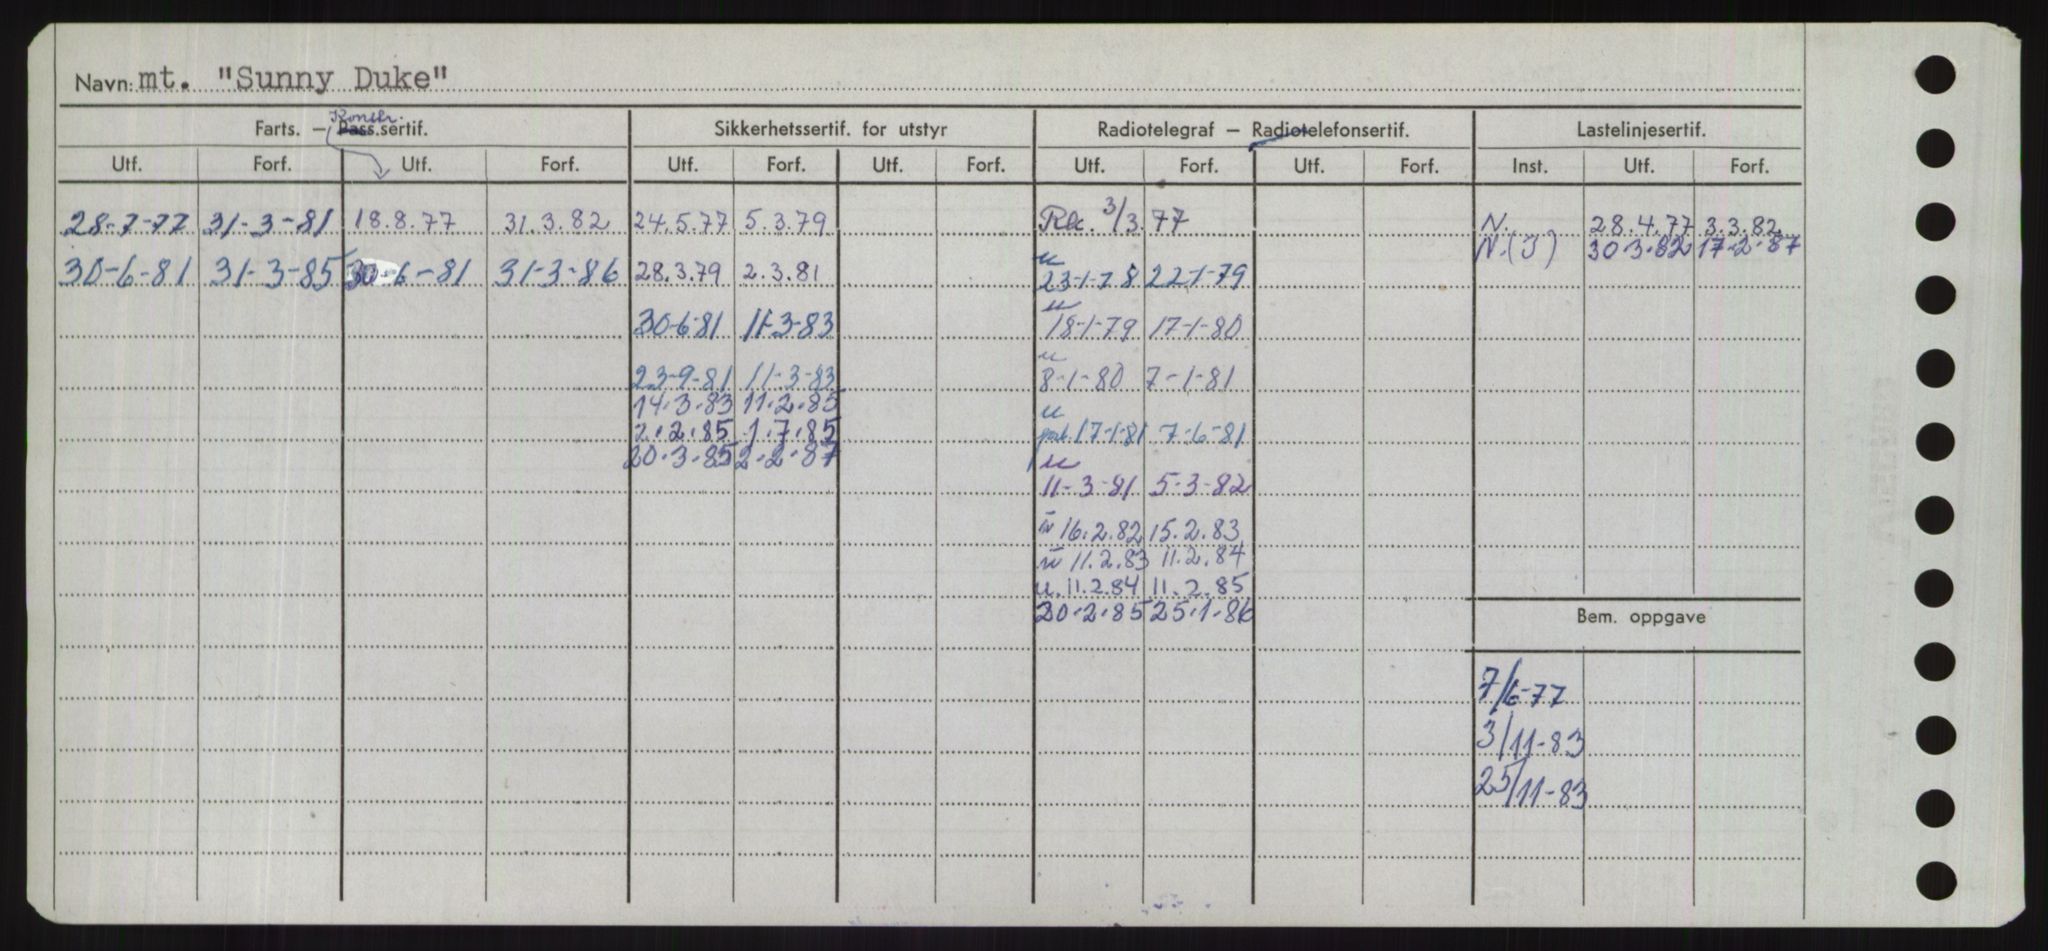 Navn: mt. "Sunny Duke"
Konstr.
Farts. – Pass.sertif. Sikkerhetssertif. for utstyr Radiotelegraf – Radiotelefonsertif. Lastelinjesertif.
Utf. Forf. Utf. Forf. Utf. Forf. Utf. Forf. Utf. Forf. Utf. Forf. Inst. Utf. Forf.
28-7-77 31-3-81 18.8.77 31.3.82 24.5.77 5.3.79 3/3.77 N. 28.4.77 3.3.82
N.(J) 30.3.82 17.2.87
30-6-81 31-3-85 30-6-81 31-3-86 28.3.79 2.3.81 23-1-78 22-1-79
30-6-81 11-3-83 18-1-79 17-1-80
23-9-81 11-3-83 8-1-80 7-1-81
14.3.83 11.2.85
2.2.85 1.7.85 17-1-81 7-6-81
20.3.85 2.2.87
11-3-81 5-3-82
16.2.82 15.2.83
11.2.83 11.2.84
u. 11.2.84 11.2.85
20.2.85 25.1.86
Bem. oppgave
7/6-77
3/11-83
25/11-83